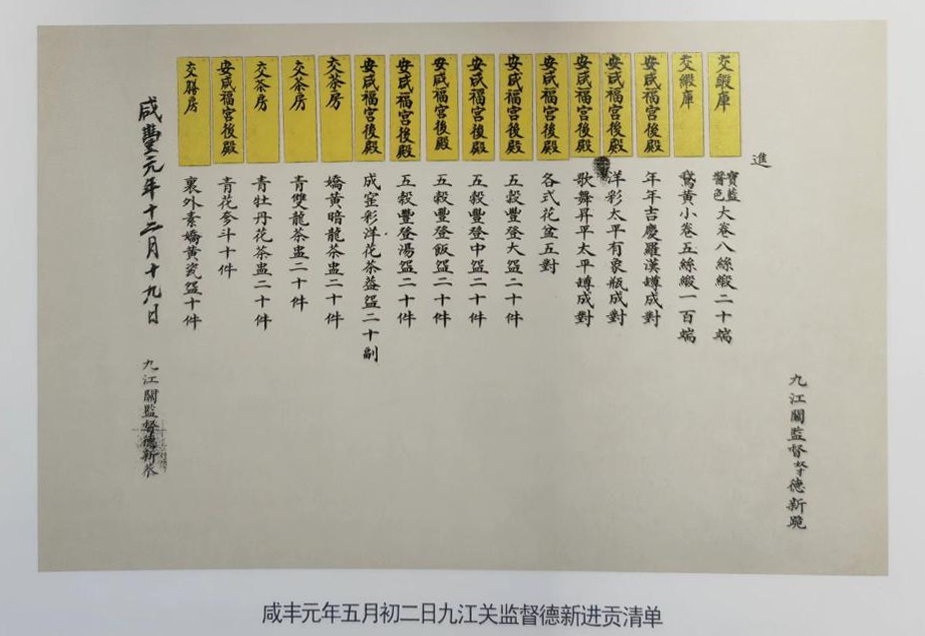 九江關監督奴才德新跪
進
交緞庫
寶藍醬色大卷八絲緞二十端
交緞庫
鵞黄小卷五絲緞一百端
安咸福宮後殿
年年吉慶羅漢罇成對
安咸福宮後殿
洋彩太平有象瓶成對
安咸福宮後殿
歌舞昇平太平罇成對
安咸福宮後殿
各式花盆五對
安咸福宮後殿
五穀豐登大盌二十件
安咸福宮後殿
五穀豐登中盌二十件
安咸福宮後殿
五穀豐登飯盌二十件
安咸福宮後殿
五穀豐登湯盌二十件
安咸福宮後殿
成窑彩洋花茶蓋盌二十副
交茶房
嬌黄暗龍茶盅二十件
交茶房
青雙龍茶盅二十件
交茶房
青牡丹花茶盅二十件
安咸福宮後殿
青花奓斗十件
交膳房
裏外素嬌黄瓷盌十件
咸豐元年十二月十九日
九江關監督德新
咸丰元年五月初二日九江关监督德新进贡清单